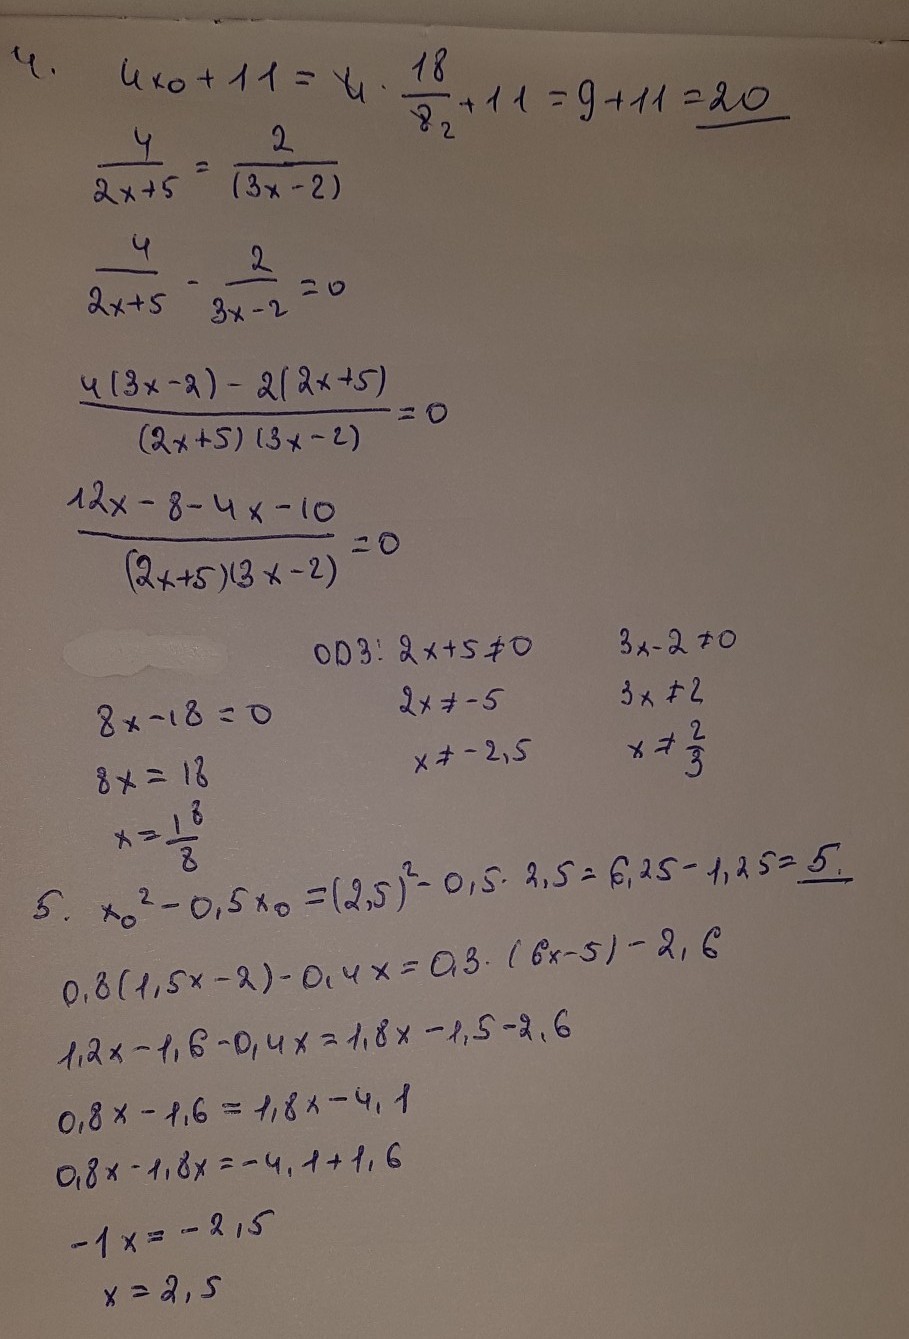 4. 4x₀ + 11 = 4 · 18/8₂ + 11 = 9 + 11 = 20
4/(2x+5) = 2/(3x-2)
4/(2x+5) - 2/(3x-2) = 0
(4(3x-2) - 2(2x+5))/((2x+5)(3x-2)) = 0
(12x - 8 - 4x - 10)/((2x+5)(3x-2)) = 0
ОДЗ: 2x+5≠0 3x-2≠0
8x-18=0 2x≠-5 3x≠2
8x=18 x≠-2,5 x≠2/3
x=18/8
5. x₀² - 0,5x₀ = (2,5)² - 0,5 · 2,5 = 6,25 - 1,25 = 5.
0,8(1,5x-2) - 0,4x = 0,3 · (6x-5) - 2,6
1,2x - 1,6 - 0,4x = 1,8x - 1,5 - 2,6
0,8x - 1,6 = 1,8x - 4,1
0,8x - 1,8x = -4,1 + 1,6
-1x = -2,5
x = 2,5